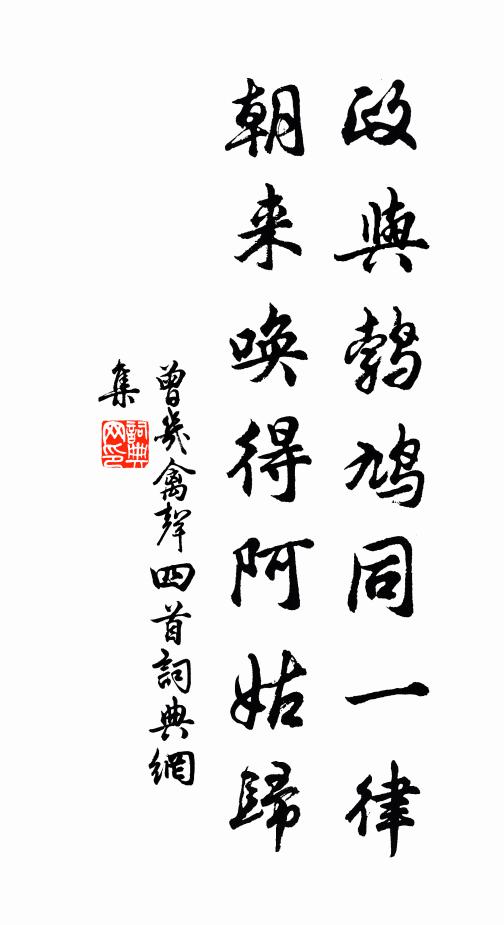 政與鵓鳩同一律
朝来喚得阿姑歸
曾幾禽聲四首詞典網
集
詞典网印